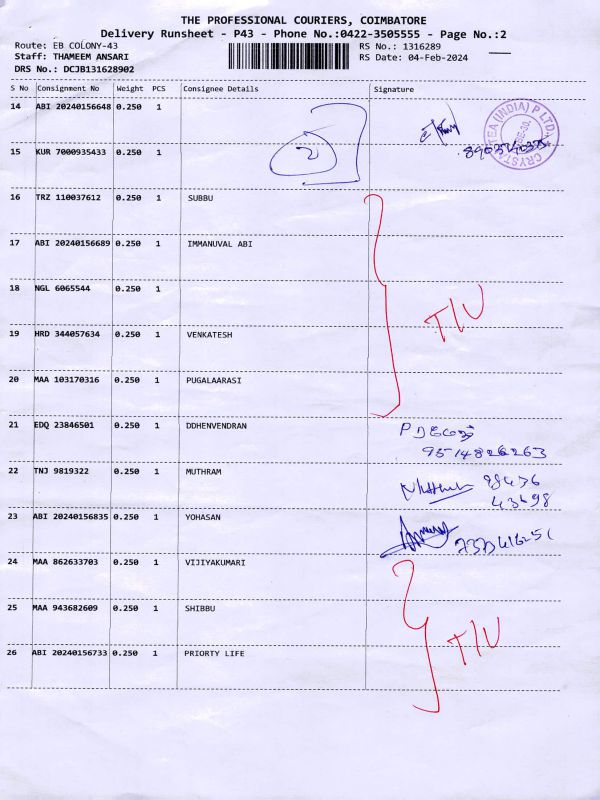 THE PROFESSIONAL COURIERS, COIMBATORE
Delivery Runsheet - P43 - Phone No.:0422-3505555 - Page No.:2
Route: EB COLONY-43 RS No.: 1316289
Staff: THAMEEM ANSARI RS Date: 04-Feb-2024
DRS No.: DCJB131628902
S No Consignment No Weight PCS Consignee Details Signature
14 ABI 20240156648 0.250 1
15 KUR 7000935433 0.250 1 2
16 TRZ 110037612 0.250 1 SUBBU
17 ABI 20240156689 0.250 1 IMMANUVAL ABI
18 NGL 6065544 0.250 1
T/U
19 HRD 344057634 0.250 1 VENKATESH
20 MAA 103170316 0.250 1 PUGALAARASI
21 EDQ 23846501 0.250 1 DDHENVENDRAN
9514826263
22 TNJ 9819322 0.250 1 MUTHRAM
43698
23 ABI 20240156835 0.250 1 YOHASAN
24 MAA 862633703 0.250 1 VIJIYAKUMARI
25 MAA 943682609 0.250 1 SHIBBU
T/U
26 ABI 20240156733 0.250 1 PRIORTY LIFE